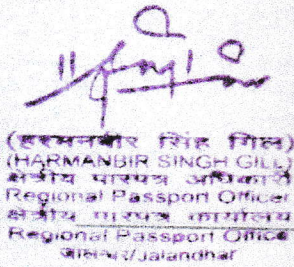 (हरमनबीर सिंह गिल)
(HARMANBIR SINGH GILL)
क्षेत्रीय पारपत्र अधिकारी
Regional Passport Officer
क्षेत्रीय पारपत्र कार्यालय
Regional Passport Office
जालन्धर/Jalandhar